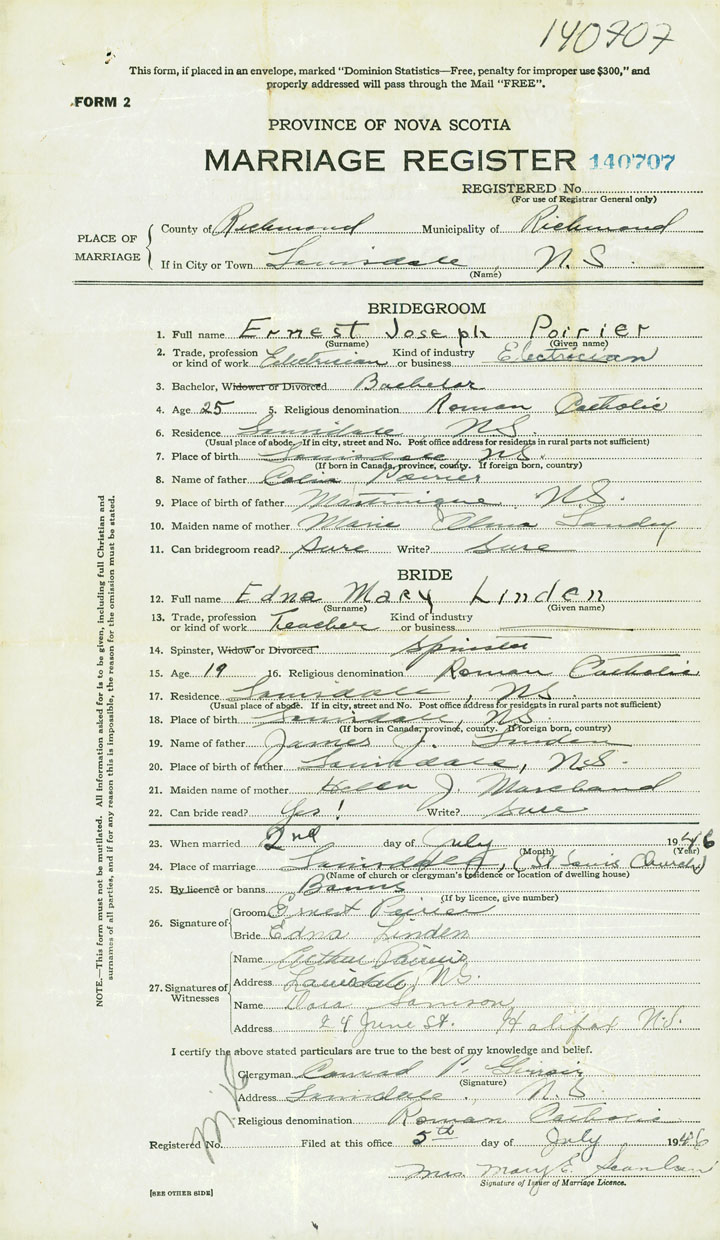 140707
This form, if placed in an envelope, marked "Dominion Statistics—Free, penalty for improper use $300," and
properly addressed will pass through the Mail "FREE".
FORM 2
PROVINCE OF NOVA SCOTIA
MARRIAGE REGISTER 140707
REGISTERED No.
(For use of Registrar General only)
PLACE OF MARRIAGE
County of Richmond Municipality of Richmond
If in City or Town Louisdale N.S.
(Name)
BRIDEGROOM
1. Full name Ernest Joseph Poirier
(Surname) (Given name)
2. Trade, profession or kind of work Electrician Kind of industry or business Electrician
3. Bachelor, Widower or Divorced Bachelor
4. Age 25 5. Religious denomination Roman Catholic
6. Residence Louisdale N.S.
(Usual place of abode. If in city, street and No. Post office address for residents in rural parts not sufficient)
7. Place of birth Louisdale, N.S.
(If born in Canada, province, county. If foreign born, country)
8. Name of father Colin Poirier
9. Place of birth of father Martinique N.S.
10. Maiden name of mother Marie Alma Landry
11. Can bridegroom read? Sure Write? Sure
BRIDE
12. Full name Edna Mary Linden
(Surname) (Given name)
13. Trade, profession or kind of work Teacher Kind of industry or business
14. Spinster, Widow or Divorced Spinster
15. Age 19 16. Religious denomination Roman Catholic
17. Residence Louisdale, N.S.
(Usual place of abode. If in city, street and No. Post office address for residents in rural parts not sufficient)
18. Place of birth Louisdale, N.S.
(If born in Canada, province, county. If foreign born, country)
19. Name of father James J. Linden
20. Place of birth of father Louisdale, N.S.
21. Maiden name of mother Helen J. Marchand
22. Can bride read? Yes! Write? Sure
23. When married 2nd day of July 1946
(Month) (Year)
24. Place of marriage Louisdale, (St Louis Church)
(Name of church or clergyman's residence or location of dwelling house)
25. By licence or banns Banns
(If by licence, give number)
26. Signature of
Groom Ernest Poirier
Bride Edna Linden
27. Signatures of Witnesses
Name Arthur Poirier
Address Louisdale, N.S.
Name Dora Samson
Address 24 June St. Halifax N.S.
I certify the above stated particulars are true to the best of my knowledge and belief.
Clergyman Conrad P. Girroir
(Signature)
Address Louisdale, N.S.
Religious denomination Roman Catholic
Registered No. Filed at this office 5th day of July 1946
Mrs. Mary E.
Signature of Issuer of Marriage Licence.
[SEE OTHER SIDE]
NOTE.—This form must not be mutilated. All information asked for is to be given, including full Christian and
surnames of all parties, and if for any reason this is impossible, the reason for the omission must be stated.